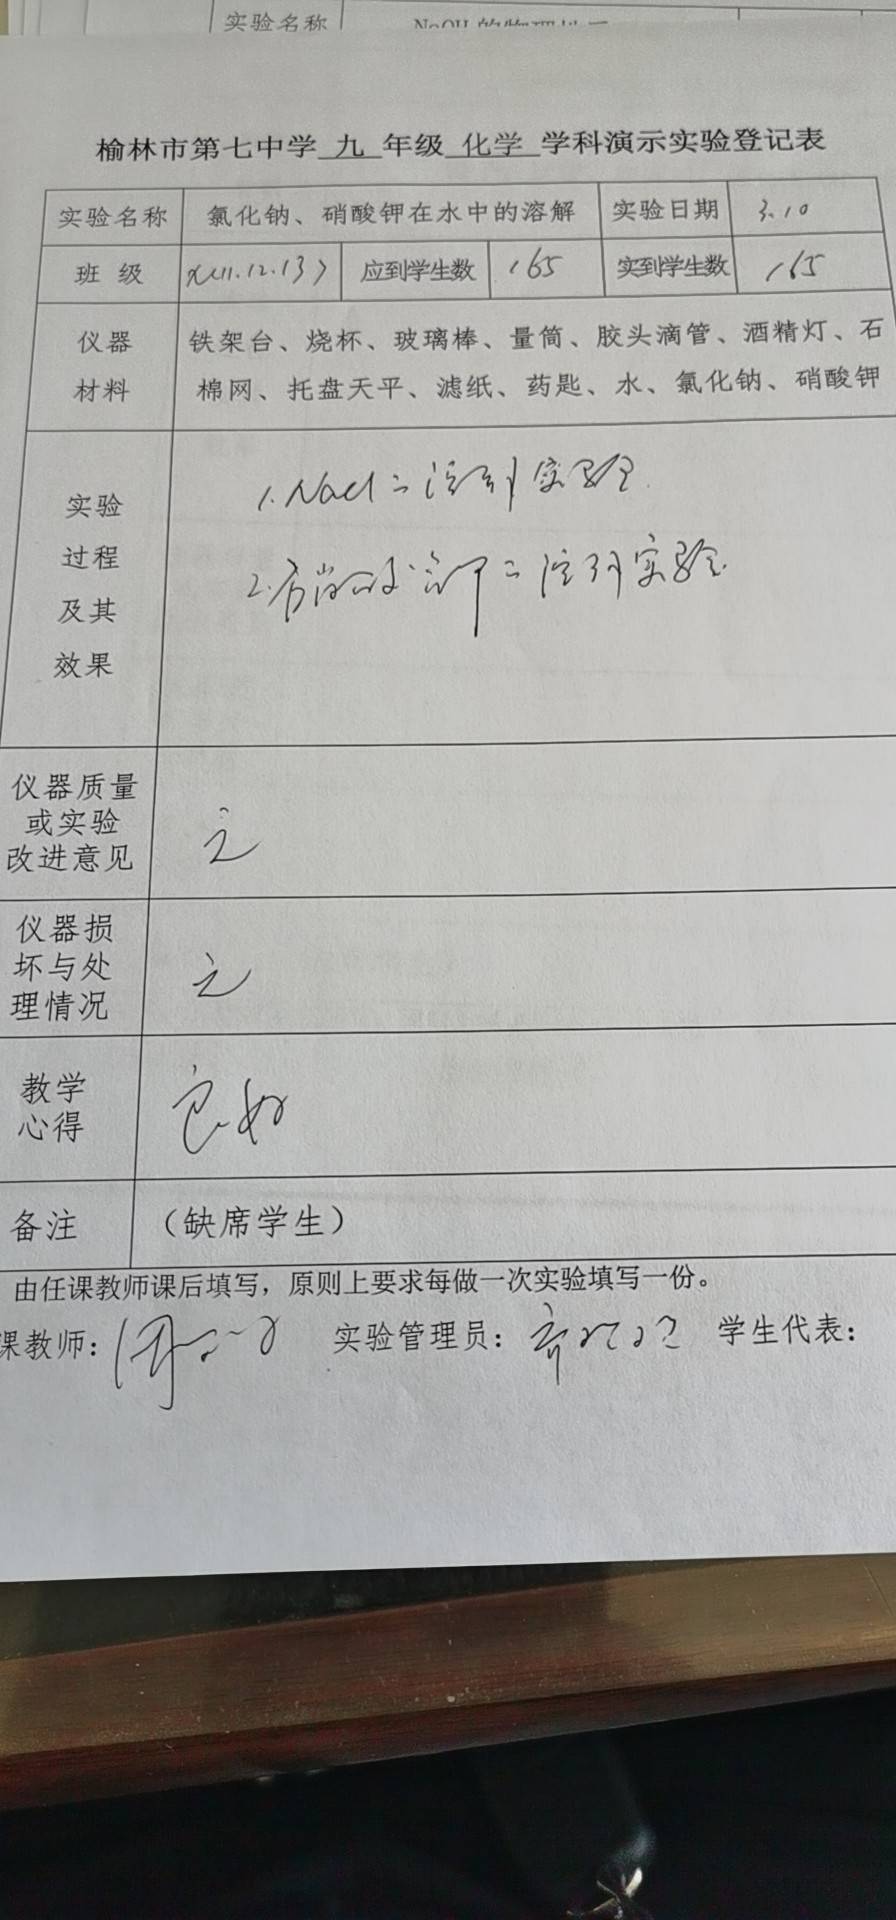 实验名称
榆林市第七中学 九 年级 化学 学科演示实验登记表
实验名称 氯化钠、硝酸钾在水中的溶解 实验日期 3.10
班 级 11.12.13) 应到学生数 165 实到学生数 165
仪器 铁架台、烧杯、玻璃棒、量筒、胶头滴管、酒精灯、石
材料 棉网、托盘天平、滤纸、药匙、水、氯化钠、硝酸钾
实验
过程
及其
效果
1. NaCl 实验
2. 实验
仪器质量
或实验
改进意见
无
仪器损
坏与处
理情况
无
教学
心得
良好
备注 （缺席学生）
由任课教师课后填写，原则上要求每做一次实验填写一份。
课教师： 实验管理员： 学生代表：